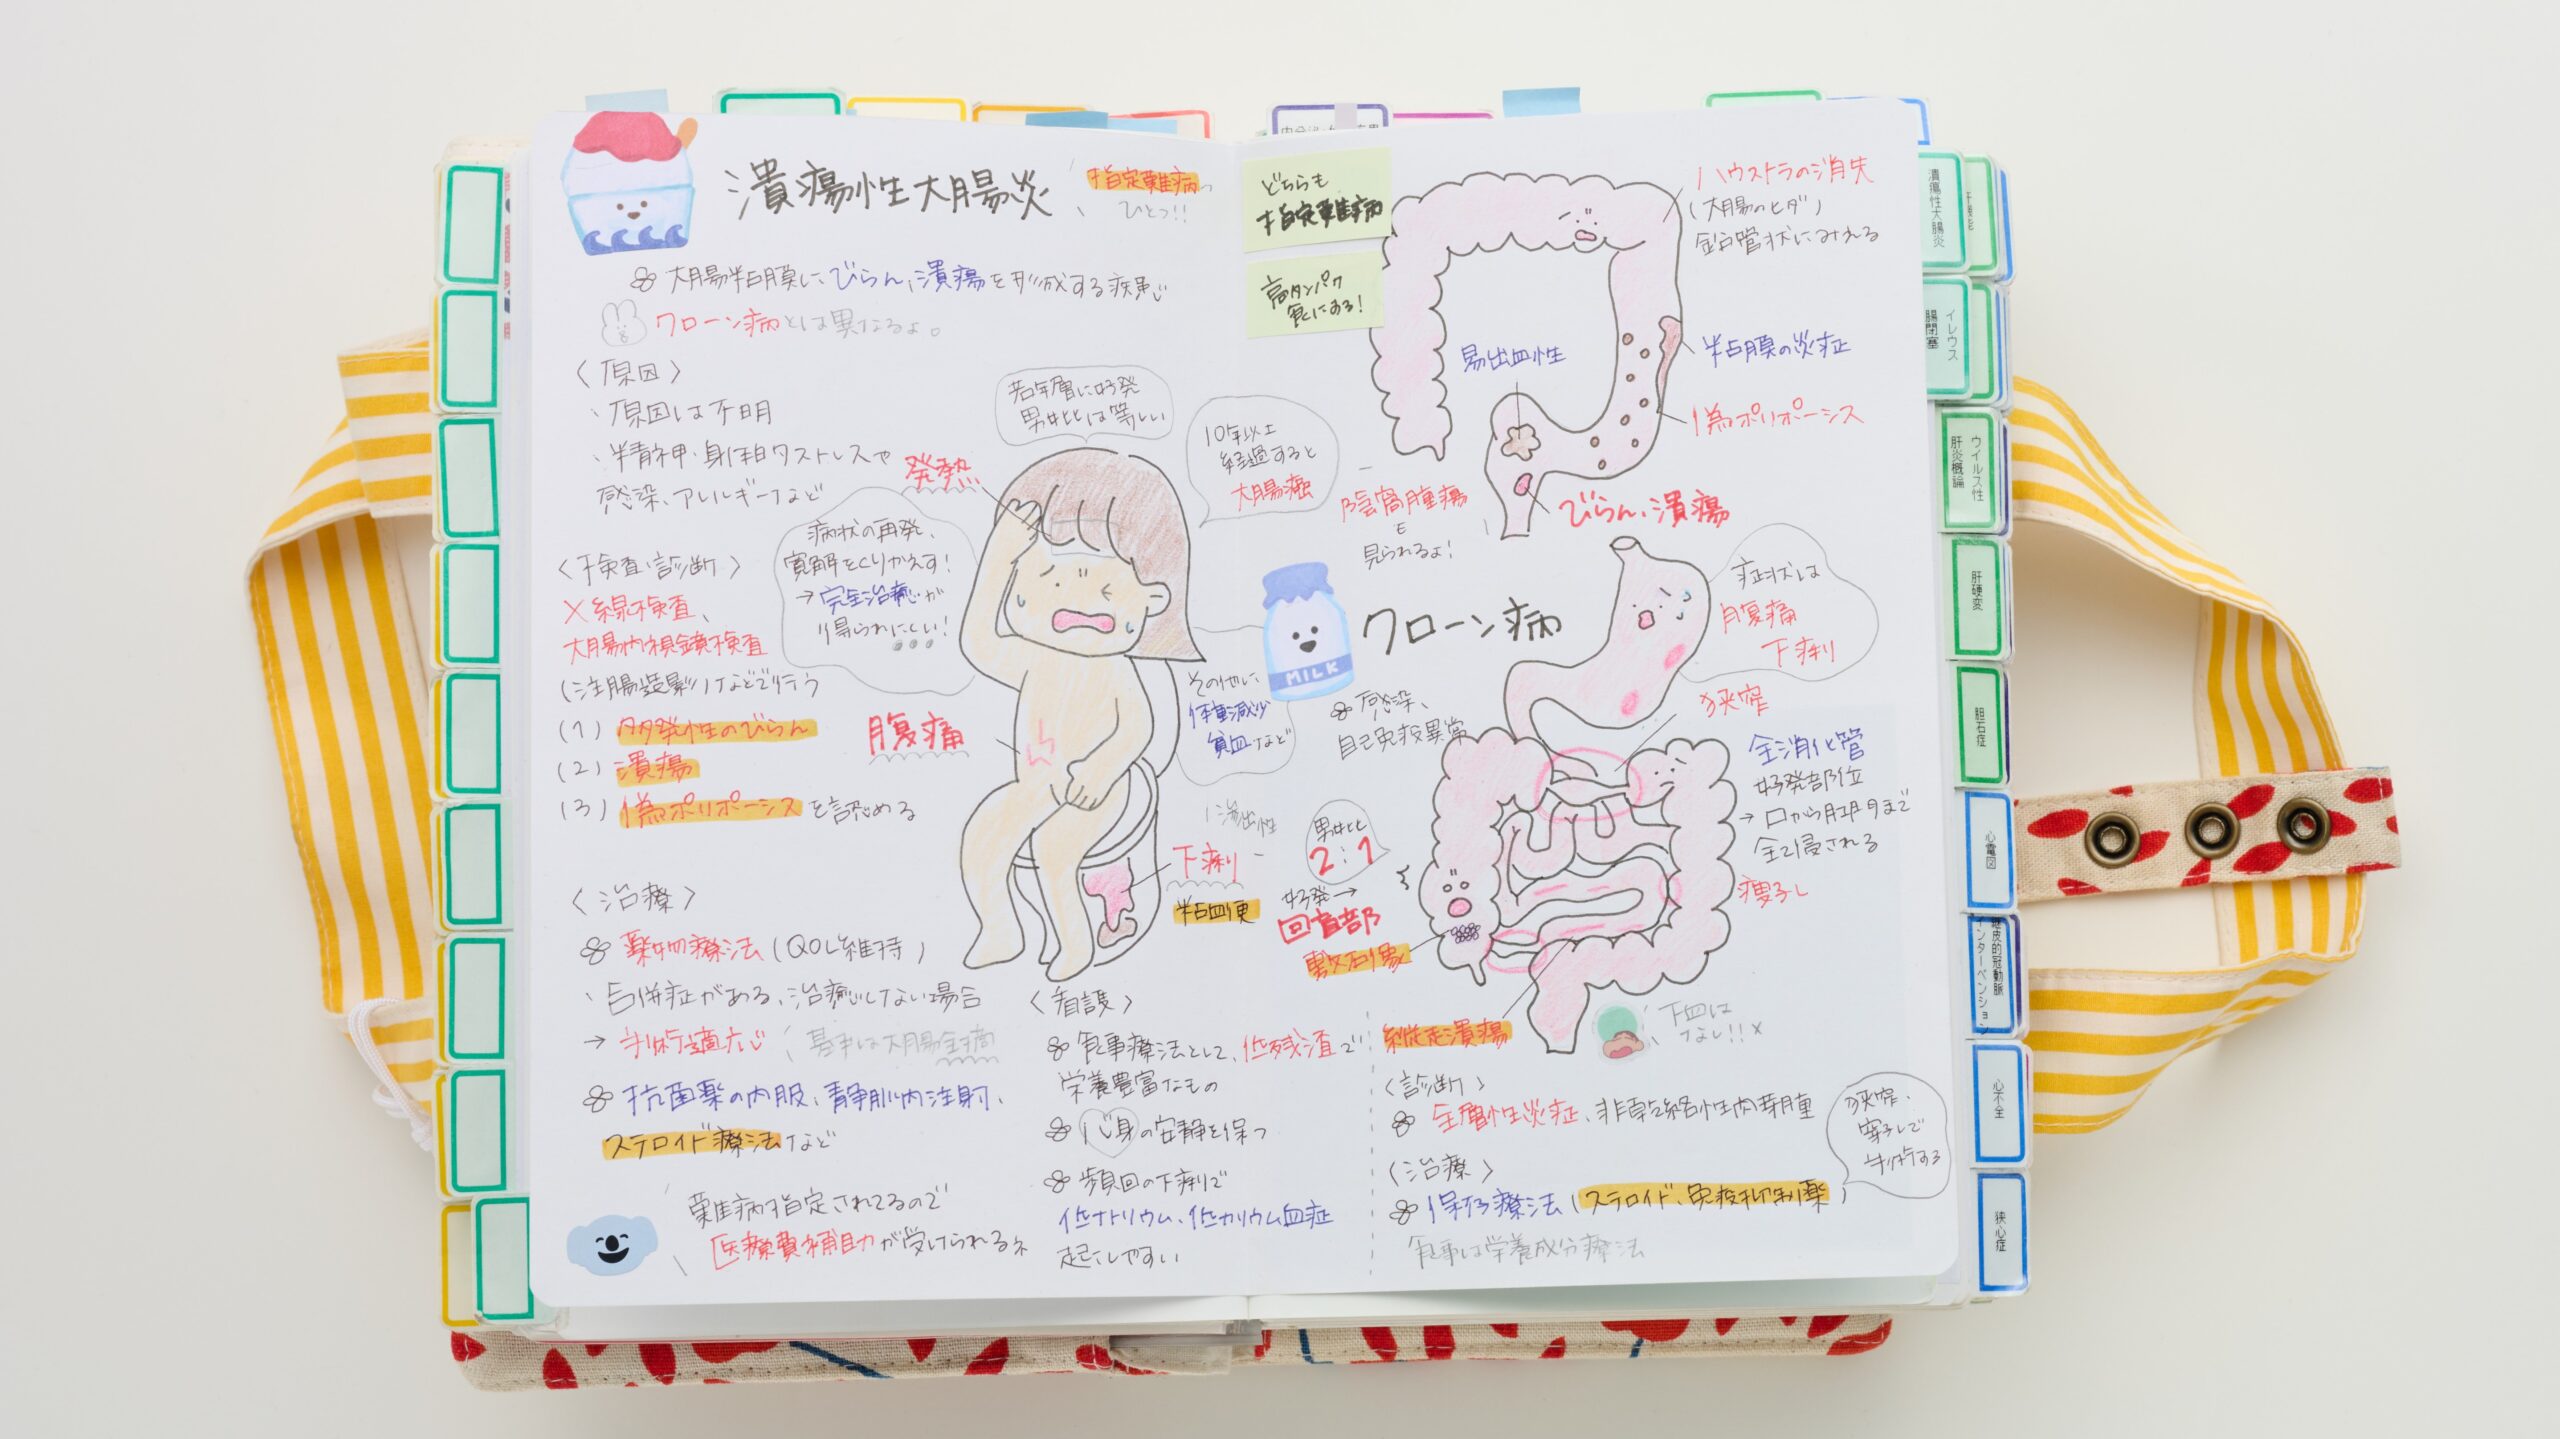 潰瘍性大腸炎
指定難病の
ひとつ!!
大腸粘膜に、びらん、潰瘍を形成する疾患
クローン病とは異なるよ。
〈原因〉
・原因は不明
・精神・身体的ストレスや
感染、アレルギーなど
若年層に好発
男女比は等しい
10年以上
経過すると
大腸癌
発熱
病状の再発、
寛解をくりかえす!
→完全治癒が
得られにくい!
〈検査・診断〉
X線検査、
大腸内視鏡検査
(注腸造影)などで行う
(1) 多発性のびらん
(2) 潰瘍
(3) 偽ポリポーシスを認める
腹痛
その他に
体重減少
貧血など
滲出性
下痢
粘血便
〈治療〉
薬物療法(QOL維持)
・合併症がある、治癒しない場合
→手術適応
基本は大腸全摘
抗菌薬の内服、静脈内注射、
ステロイド療法など
難病指定されてるので
医療費補助が受けられるネ
〈看護〉
食事療法として、低残渣で
栄養豊富なもの
心身の安静を保つ
頻回の下痢で
低ナトリウム、低カリウム血症
起こしやすい
どちらも
指定難病
高タンパク
食にする!
ハウストラの消失
(大腸のヒダ)
鉛管状にみえる
易出血性
粘膜の炎症
偽ポリポーシス
陰窩膿瘍
も
見られるよ!
びらん、潰瘍
MILK
クローン病
症状は
腹痛
下痢
感染、
自己免疫異常
狭窄
全消化管
好発部位
→口から肛門まで
全て侵される
瘻孔
男女比
2:1
好発→
回盲部
敷石像
縦走潰瘍
下血は
なし!!×
〈診断〉
全層性炎症、非乾酪性肉芽腫
〈治療〉
保存療法(ステロイド、免疫抑制薬)
食事は栄養成分療法
狭窄、
穿孔で
手術する
潰瘍性大腸炎
肝機能
イレウス
腸閉塞
ウイルス性
肝炎概論
肝硬変
胆石症
心電図
経皮的冠動脈
インターベンション
心不全
狭心症